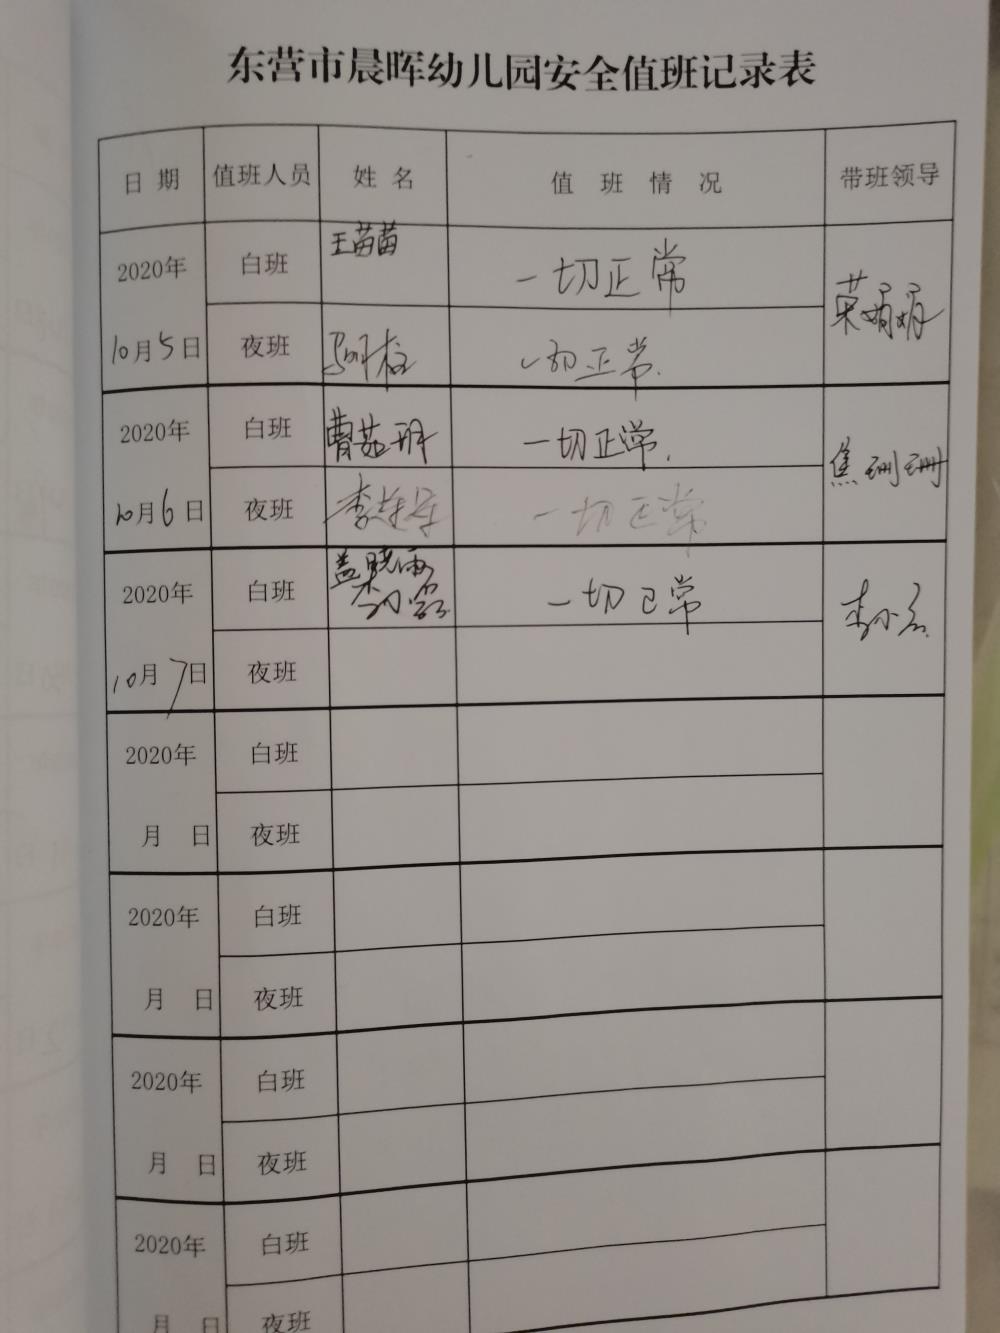 东营市晨晖幼儿园安全值班记录表
日期 值班人员 姓名 值班情况 带班领导
2020年 白班 王苗苗 一切正常
10月5日 夜班 一切正常. 荣娟娟
2020年 白班 曹茹 一切正常.
10月6日 夜班 李 一切正常 焦珊珊
2020年 白班 盖晓雨 一切正常 李小
10月7日 夜班
2020年 白班
月 日 夜班
2020年 白班
月 日 夜班
2020年 白班
月 日 夜班
2020年 白班
月 日 夜班